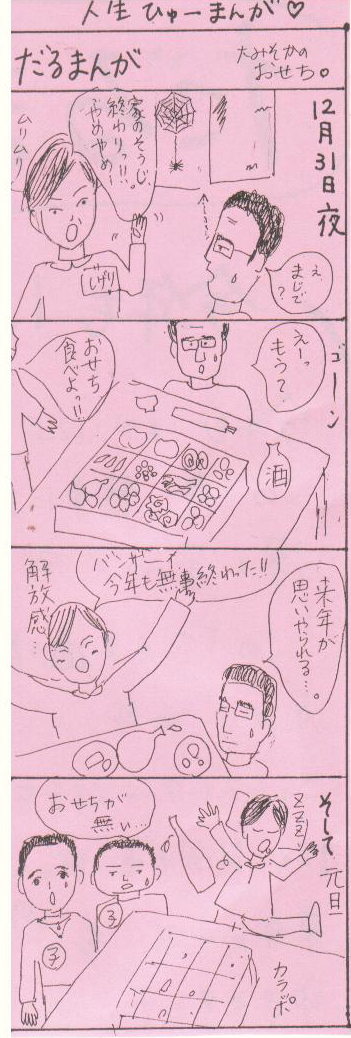 人生ひゅーまんが♡
だるまんが
大みそかの
おせち。
12月31日夜
え
まじで
?
家のそうじ
終わりっ!!。
やめやめ、
ムリムリ
しげり
ゴーン
えーっ
もう?。
おせち
食べよっ!!
酒
来年が
思いやられる…。
バンザーイ
今年も無事終わった!!
解放感…
そして元旦
ZZZ
おせちが
無い…
子
子
カラッポ